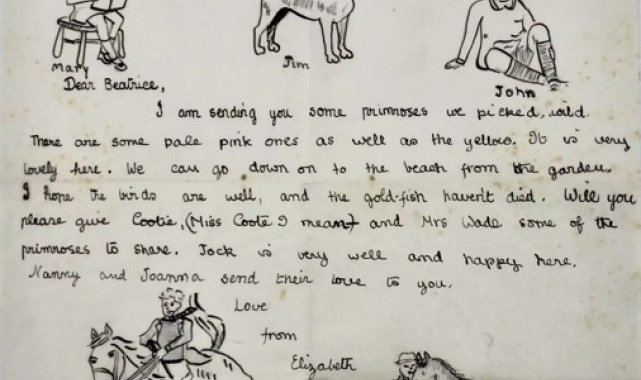 Mary
Jim
John
Dear Beatrice,
I am sending you some primroses we picked, wild.
There are some pale pink ones as well as the yellow. It is very
lovely here. We can go down on to the beach from the garden.
I hope the birds are well, and the gold-fish haven't died. Will you
please give Cootie, (Miss Coote I mean) and Mrs Wade some of the
primroses to share. Jock is very well and happy here.
Nanny and Joanna send their love to you.
Love
from
Elizabeth